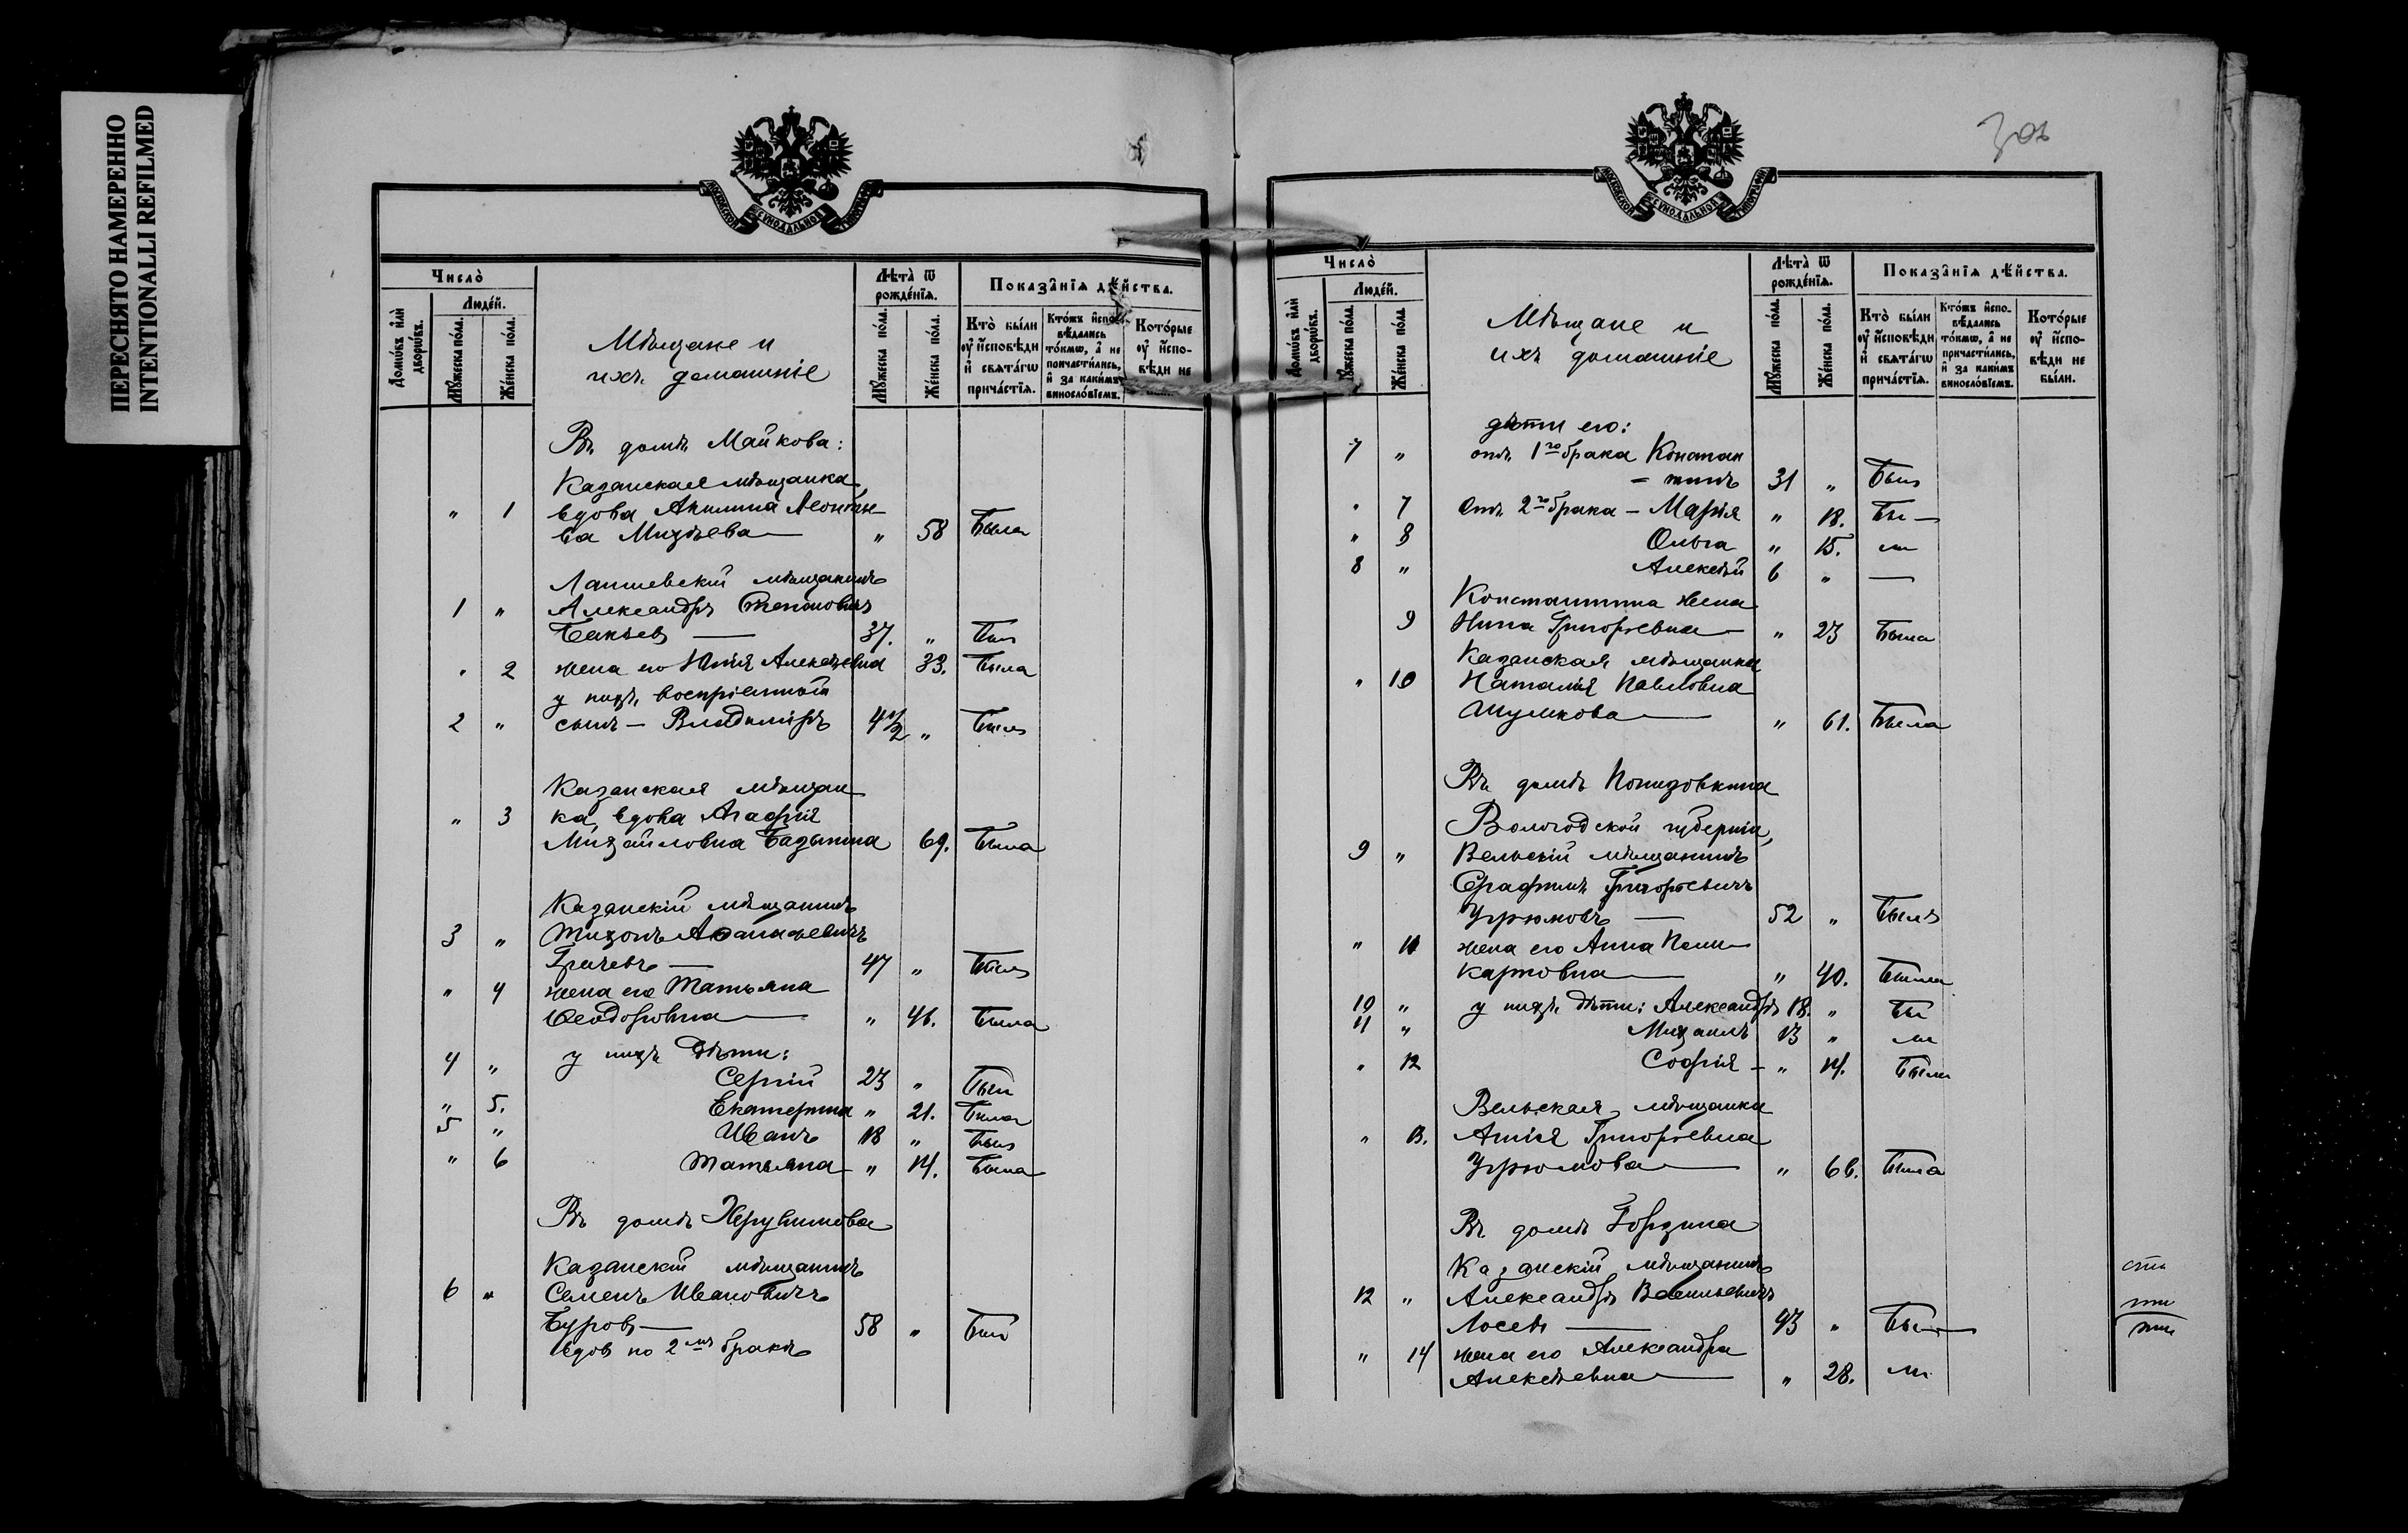 ПЕРЕСНЯТО НАМЕРЕННО
INTENTIONALLI REFILMED
МОСКОВСКОЙ СѴНОДАЛЬНОЙ ТИПОГРАФІИ
Число̀
Людéй.
Домѡ́въ и҆лѝ дворѡ́въ.
Мꙋ́жеска по́ла.
Же́нска по́ла.
Мѣщане и
ихъ домашніе
Лѣ́та ѿ рожде́нїѧ.
Мꙋ́жеска по́ла.
Же́нска по́ла.
Показа̑нїѧ дѣ́йства.
Кто̀ бы́ли ᲂу҆ и҆сповѣ́ди и҆ свѧта́гѡ прича́стїѧ.
Кто́жъ и҆сповѣ́дались то́кмѡ, а҆ не причасти́лись, и҆ за каки́мъ винослові́емъ.
Кото́рые ᲂу҆ и҆сповѣ́ди не
Въ домѣ Майкова:
Казанская мѣщанка,
" 1 вдова Акилина Леонтье-
ва Михѣева — " 58 Была
Лаишевскій мѣщанинъ
1 " Александръ Степановичъ
Бакѣев — 37. " Был
" 2 жена его Юлія Алексѣевна 33. Была
у нихъ воспріемный
2 " сынъ — Владиміръ 4 1/2 " Былъ
Казанская мѣщан
" 3 ка, вдова Агафія
Михайловна Бадьина 69. Была
Казанскій мѣщанинъ
3 " Тихонъ Аѳанасьевичъ
Грачевъ — 47 " Былъ
" 4 жена его Татьяна
Ѳеодоровна — " 46. Была
4 " у нихъ дѣти:
Сергій 23 " Был
" 5. Екатерина " 21. Была
5 " Иванъ 18 " Былъ
" 6 Татьяна " 14. Была
Въ домѣ Херувимова
Казанскій мѣщанинъ
6 " Семенъ Ивановичъ
Буровъ — 58 " Был
вдов по 2мъ бракѣ
МОСКОВСКОЙ СѴНОДАЛЬНОЙ ТИПОГРАФІИ
Число̀
Людéй.
Домѡ́въ и҆лѝ дворѡ́въ.
Мꙋ́жеска по́ла.
Же́нска по́ла.
Мѣщане и
ихъ домашніе
Лѣ́та ѿ рожде́нїѧ.
Мꙋ́жеска по́ла.
Же́нска по́ла.
Показа̑нїѧ дѣ́йства.
Кто̀ бы́ли ᲂу҆ и҆сповѣ́ди и҆ свѧта́гѡ прича́стїѧ.
Кто́жъ и҆сповѣ́дались то́кмѡ, а҆ не причасти́лись, и҆ за каки́мъ винослові́емъ.
Кото́рые ᲂу҆ и҆сповѣ́ди не бы́ли.
дѣти его:
7 " отъ 1го брака Констан
- тинъ 31 " Был
" 7 Отъ 2го брака — Марія " 18. Бы —
" 8 Ольга " 15. ли
8 " Алексѣй 6 " —
Константина жена
9 Нина Григорьевна — " 23 Была
Казанская мѣщанка
" 10 Наталія Павловна
Шумкова — " 61. Была
Въ домѣ
Вологодской губерніи,
9 " Вельскій мѣщанинъ
Серафимъ Григорьевичъ
Угрюмовъ — 52 " Былъ
" 11 жена его Анна Поли-
карповна — " 40. Была
10 " у нихъ дѣти: Александръ 18. " Бы
11 " Михаилъ 13 " ли
" 12 Софія — " 14. Были
Вельская мѣщанка
" 13. Агнія Григорьевна
Угрюмова — " 66. Была
Въ домѣ Борзина
Казанскій мѣщанинъ
12 " Александръ Васильевичъ
Лосевъ — 43 " Бы —
" 14 жена его Александра
Алексѣевна — " 28. ли